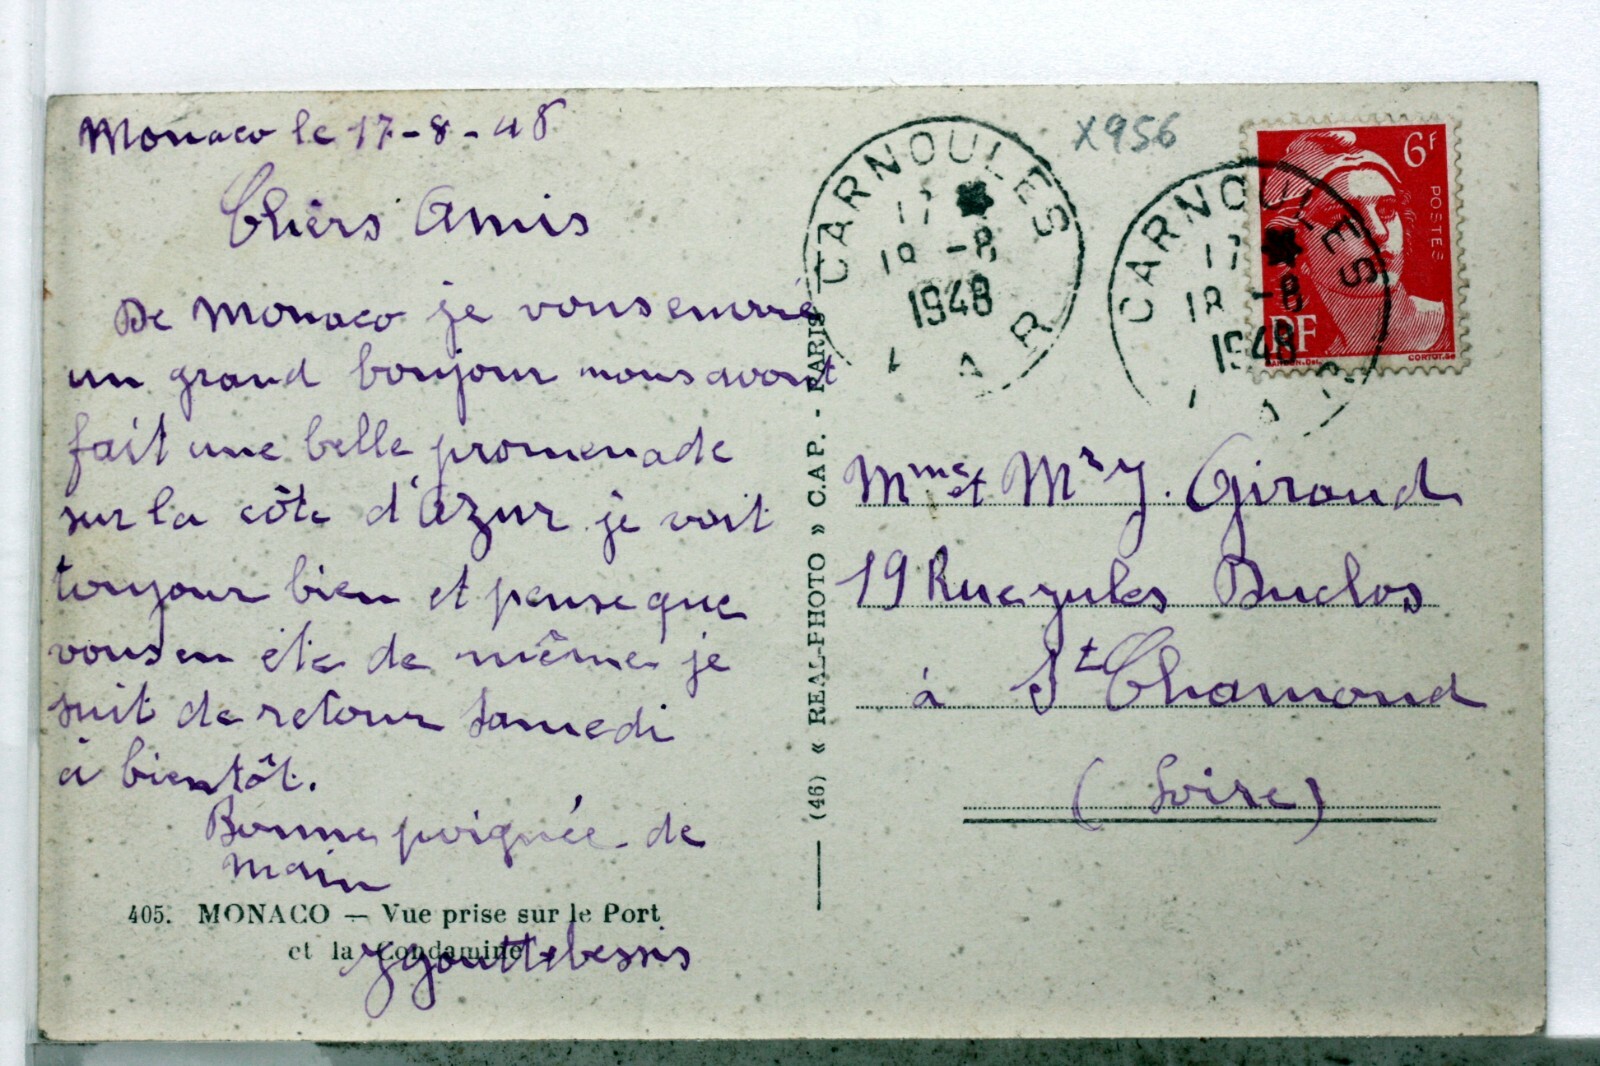 Monaco le 17-8-48
Chèrs Amis
De Monaco je vous envoie
un grand bonjour nous avont
fait une belle promenade
sur la côte d'Azur je voit
toujour bien et pense que
vous en ète de même je
suit de retour Samedi
à bientôt.
Bonne poignée de
main
405. MONACO — Vue prise sur le Port
et la Condamine
(46) « REAL-PHOTO » C.A.P. - PARIS
CARNOULES
17 ✱
18 -8
1948
VAR
X956
CARNOULES
17 ✱
18 -8
1948
VAR
6F
POSTES
RF
GANDON.Del.
CORTOT.Sc
Mme et Mr J. Giraud
19 Rue Jules Duclos
à St Chamond
(Loire)